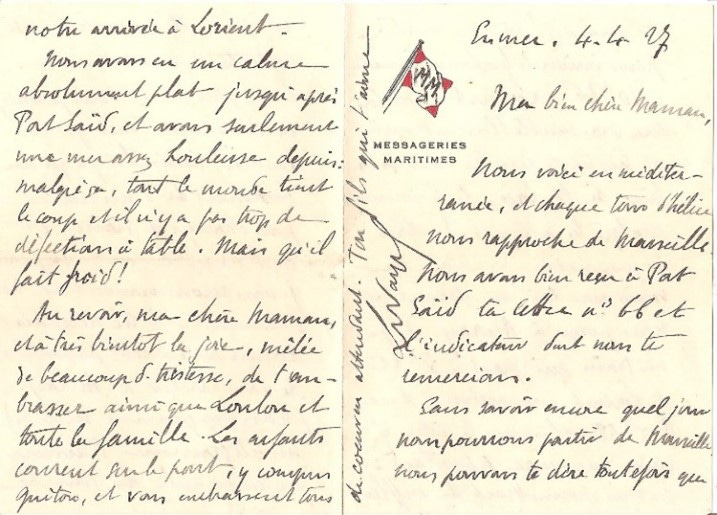 En mer. 4.4.27
Ma bien chère Maman,
MESSAGERIES
MARITIMES
Nous voici en méditer-
ranée, et chaque tour d'hélice
nous rapproche de Marseille.
Nous avons bien reçu à Port
Saïd ta lettre nº 66 et
l'indicateur dont nous te
remercions.
Sans savoir encore quel jour
nous pourrons partir de Marseille
nous pouvons te dire toutefois que
notre arrivée à Lorient.
Nous avons eu un calme
absolument plat jusqu'après
Port Saïd, et avons seulement
une mer assez houleuse depuis:
malgré ça, tout le monde tient
le coup et il n'y a pas trop de
défections à table. Mais qu'il
fait froid!
Au revoir, ma chère Maman,
et à très bientôt la joie, mêlée
de beaucoup de tristesse, de t'em-
brasser ainsi que Loulou et
toute la famille. Les enfants
courent sur le pont, y compris
, et vous embrassent tous
de coeur en attendant. Ton fils qui t'aime